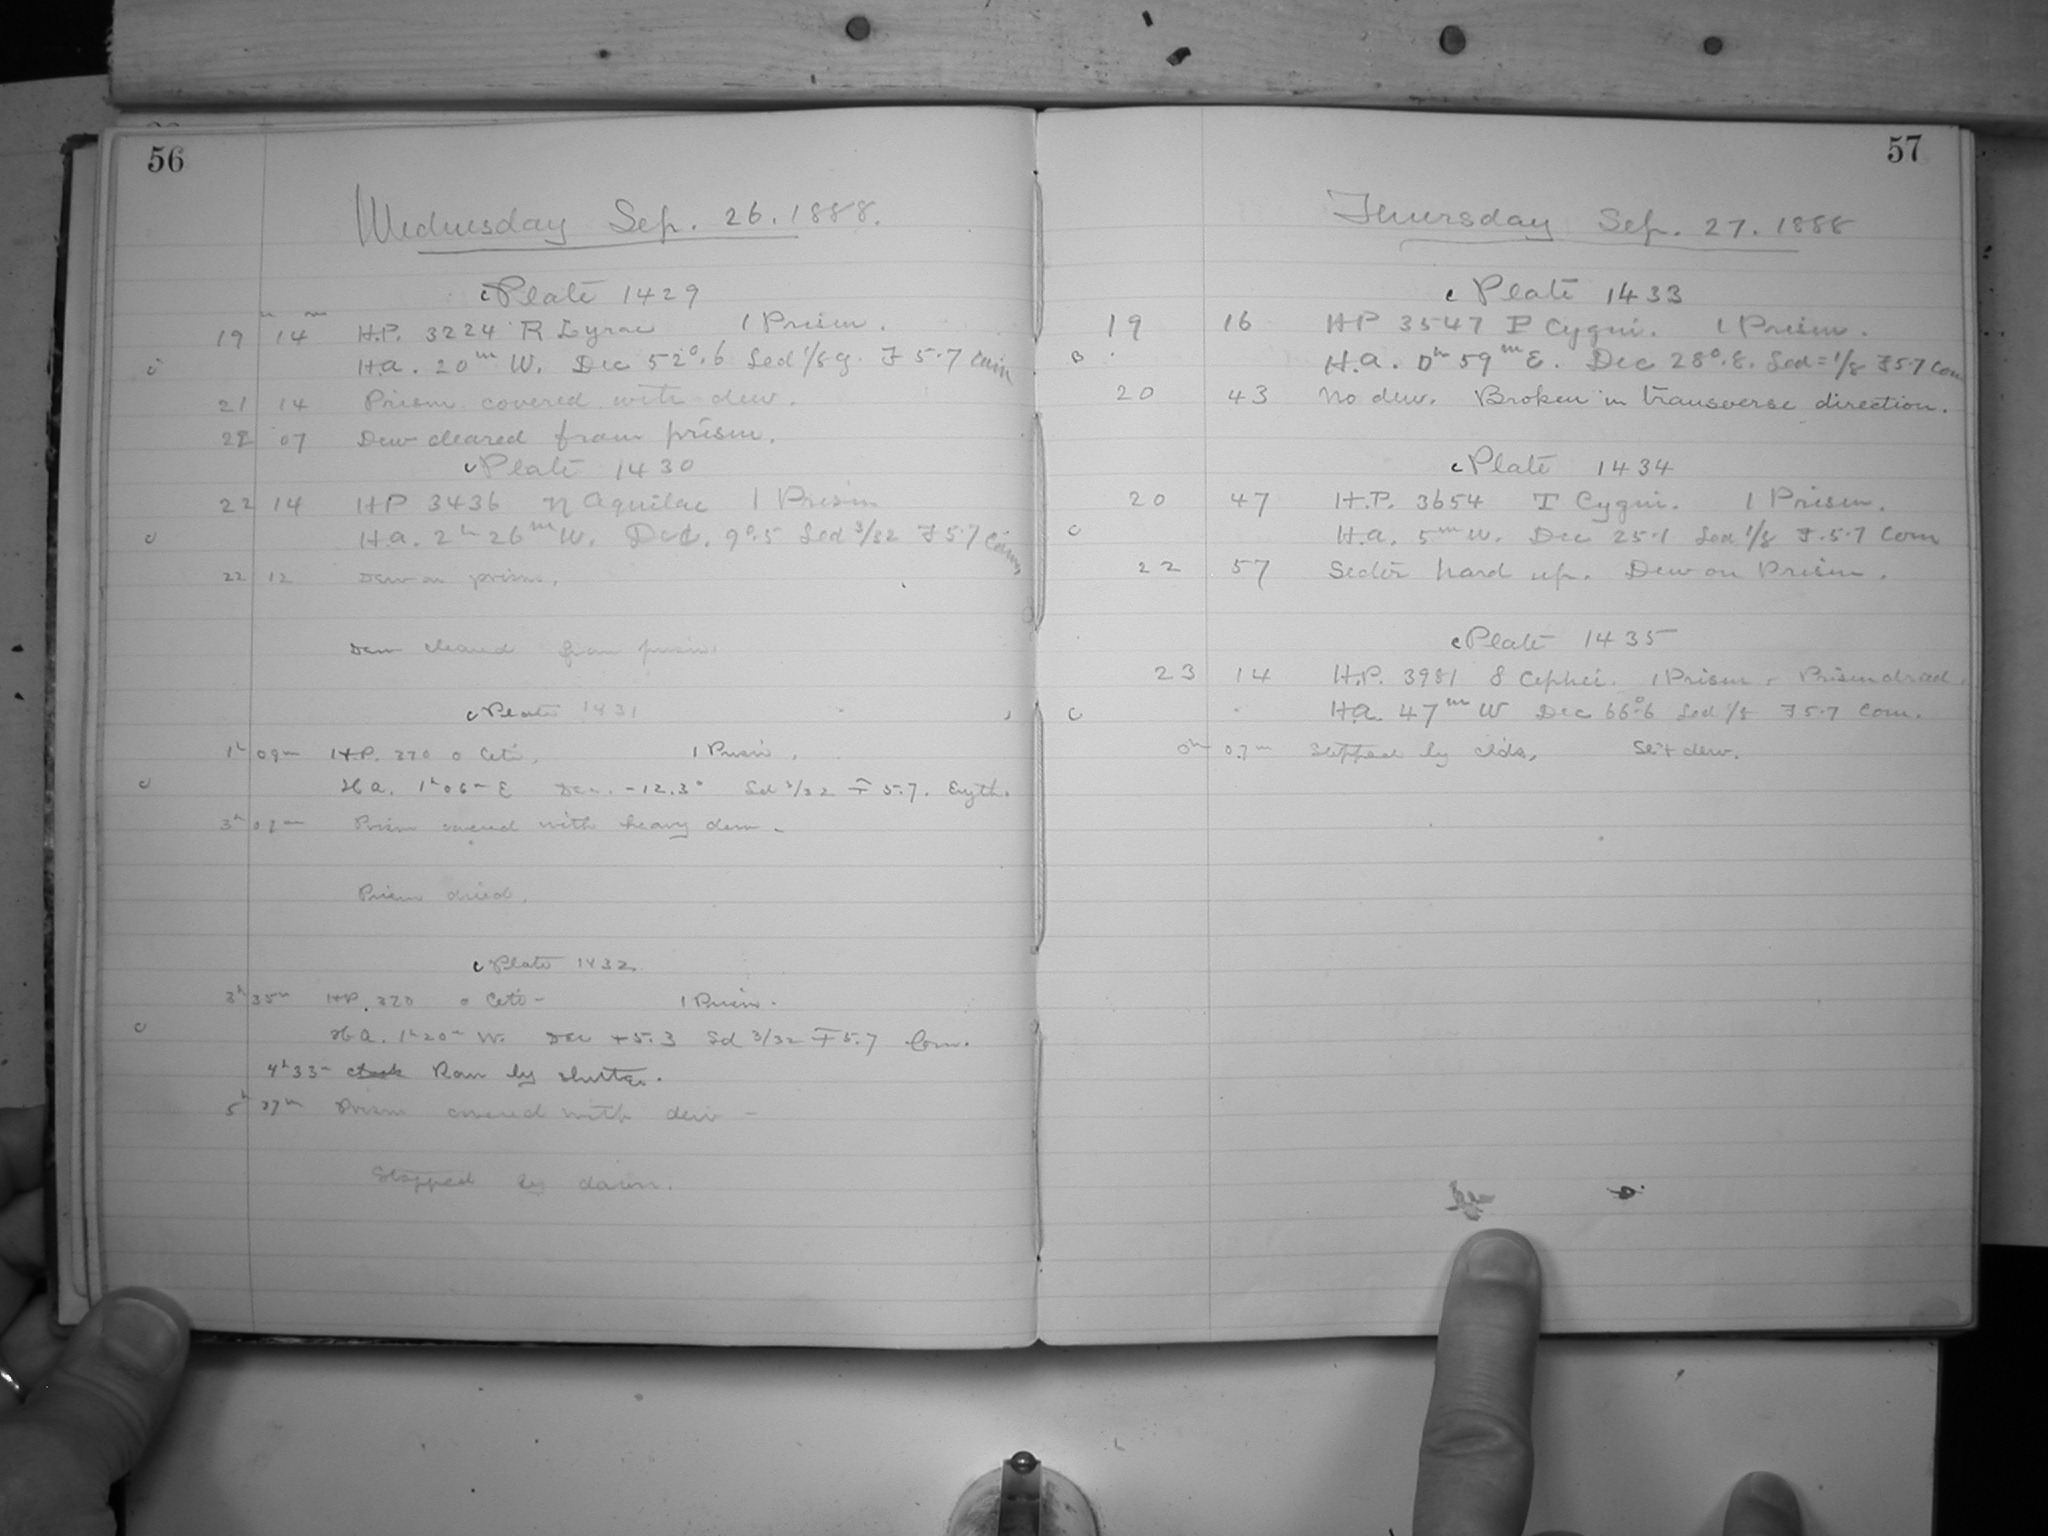 56
Wednesday Sep. 26. 1888.
c Plate 1429
19h 14m H.P. 3224 R Lyrae 1 Prism.
c H.a. 20m W. Dec 52°.6 Sed 1/8 F 5.7 Com
21 14 Prism covered with dew.
22 07 Dew cleared from prism.
c Plate 1430
22 14 HP 3436 η Aquilae 1 Prism
c H.a. 2h 26m W. Dec. 9°.5 Sed 3/32 F 5.7 Comm
22 12 Dew on prism.
Dew cleared from prism
c Plate 1431
1h 09m H.P. 370 o Ceti. 1 Prism.
c H a. 1h 06m E Dec. -12.3° Sed 3/32 F 5.7. Eryth.
3h Prism covered with heavy dew -
Prism dried.
c Plate 1432
3h 35m H.P. 370 o Ceti - 1 Prism.
c H a. 1h 20m W. Dec +5.3 Sd 3/32 F 5.7 Com.
4h 33m clock Ran by shutter.
5h 37m Prism covered with dew -
Stopped by dawn.
57
Thursday Sep. 27. 1888
c Plate 1433
19 16 HP 3547 P Cygni. 1 Prism.
B H.a. 0h 59m E. Dec 28°.8. Sed = 1/8 F 5.7 Com
20 43 No dew. Broken in transverse direction.
c Plate 1434
20 47 H.P. 3654 T Cygni. 1 Prism.
c H.a. 5m W. Dec 25.1 Sed 1/8 F. 5.7 Com
22 57 Seder hard up. Dew on Prism.
c Plate 1435
23 14 H.P. 3981 δ Cephei. 1 Prism. Prism dried.
c H.a. 47m W Dec 66°.6 Sed 1/8 F 5.7 Com.
0h 07m Stopped by clds. Slt dew.